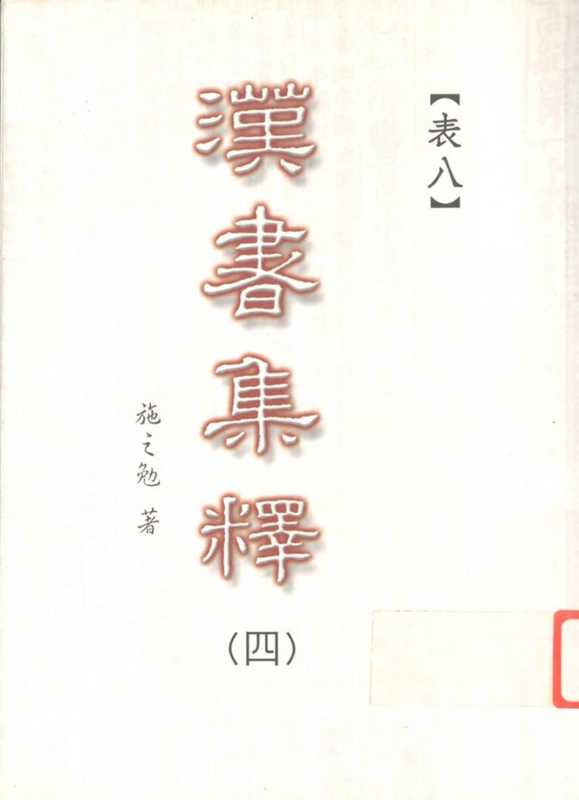 【表八】
漢書集釋
(四)
施之勉 著